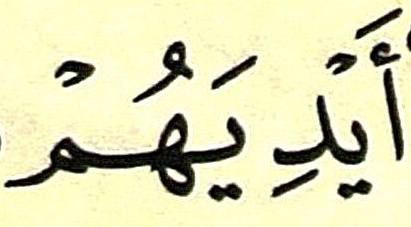 أَيْدِيَهُمْ